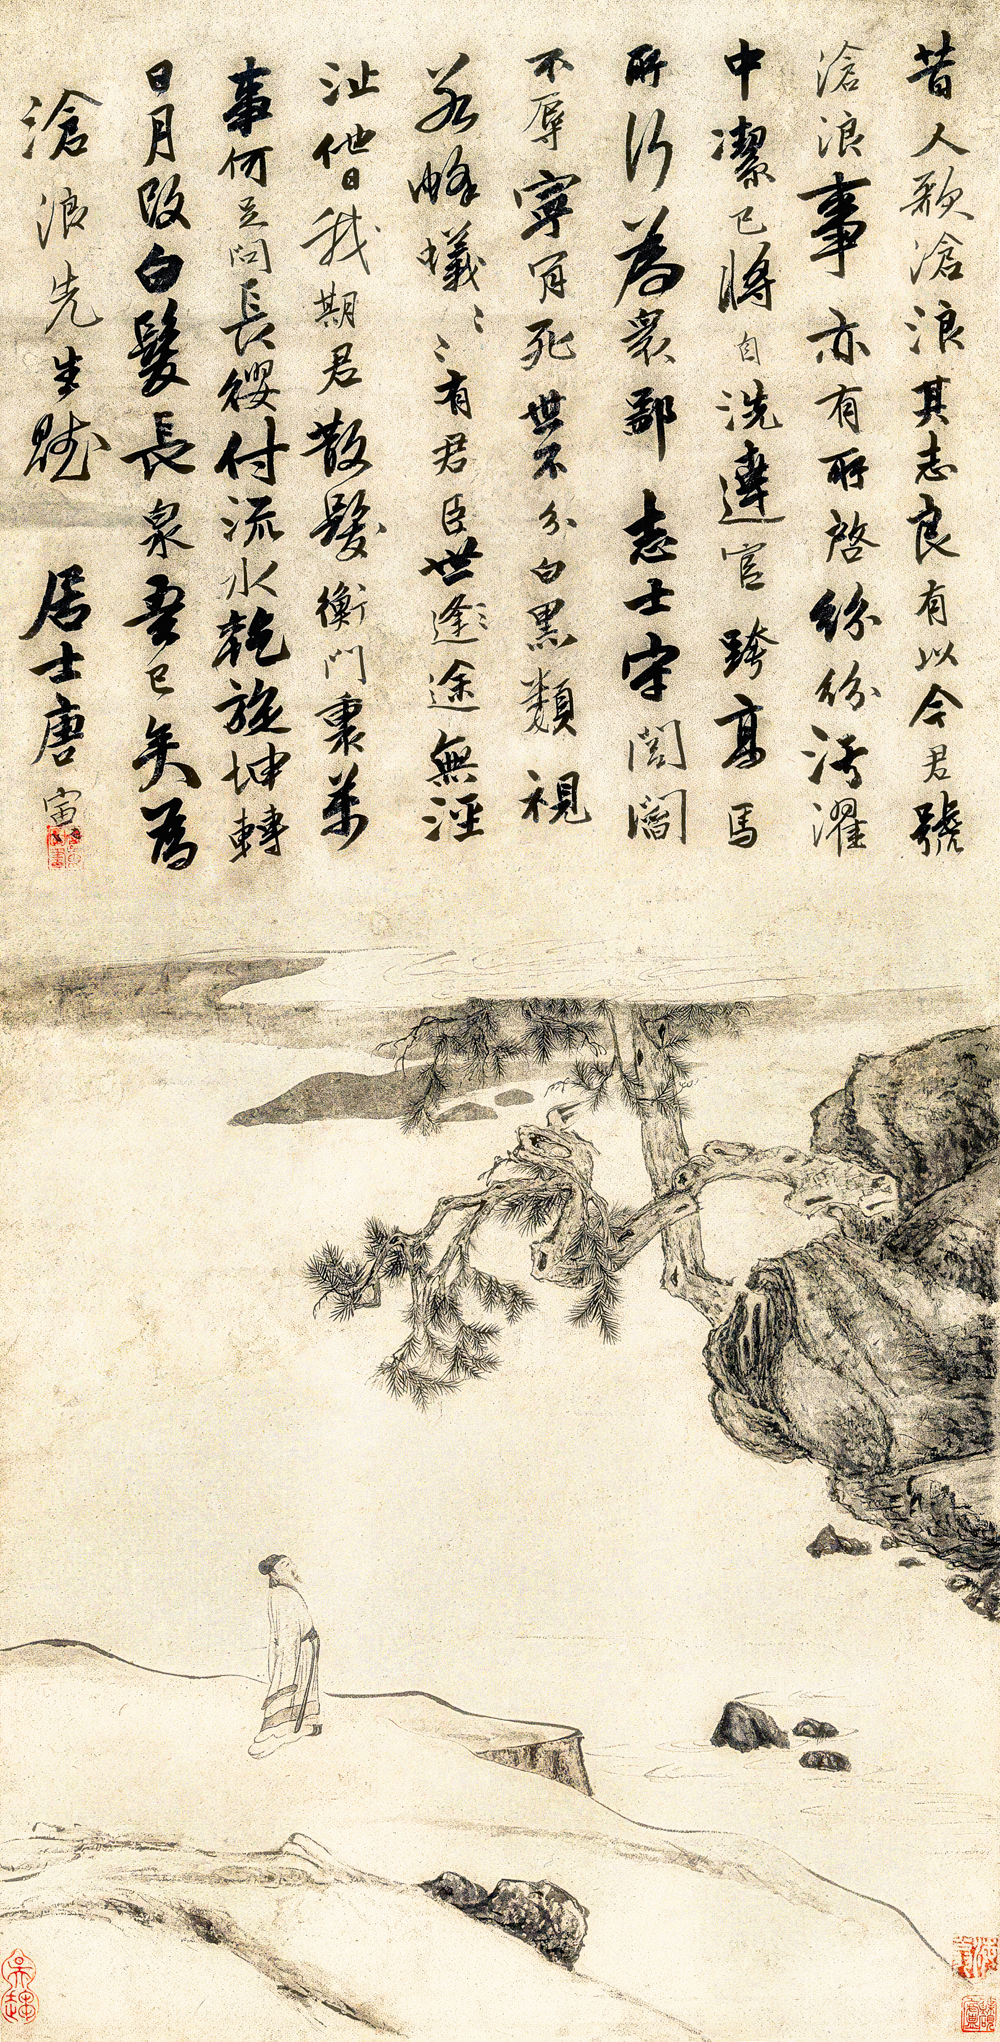 昔人歌滄浪其志良有以今君號
滄浪事亦有所啓紛紛污濯
中潔已將自洗達官跨高馬
所行為衆鄙志士守閭閻
不辱寧死世不分白黑類視
若蜂蟻〻〻有君臣世逢〻途無涇
沚他日我期君散髮衡門裏萬
事何足問長纓付流水乾旋坤轉
日月改白髮長泉吾已矣為
滄浪先生賦 居士唐寅
吳趨